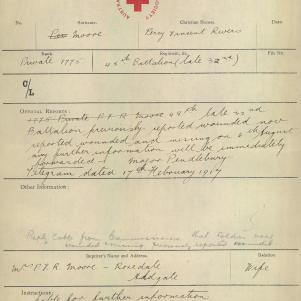 No.
Surname.
Christian Names.
Moore
Percy Vincent Rivers
Rank.
Regiment, &c.
File No.
Private 1775
Battalion (late 32nd)
C/L
OFFICIAL REPORTS:
1775 Private P. V. R. Moore 48th late 32nd
Battalion previously reported wounded now
reported wounded and missing on 6th August
any further information will be immediately
forwarded. Major Pendlebury
Telegram dated 17th February 1917
Other Information:
Reply Cable from Commissioners that Soldier now
wounded missing previously reported wounded
Inquirer's Name and Address.
Relation
Mrs P. V. R. Moore - Rosedale
Aldgate
Wife
Instructions:
Cable for further information